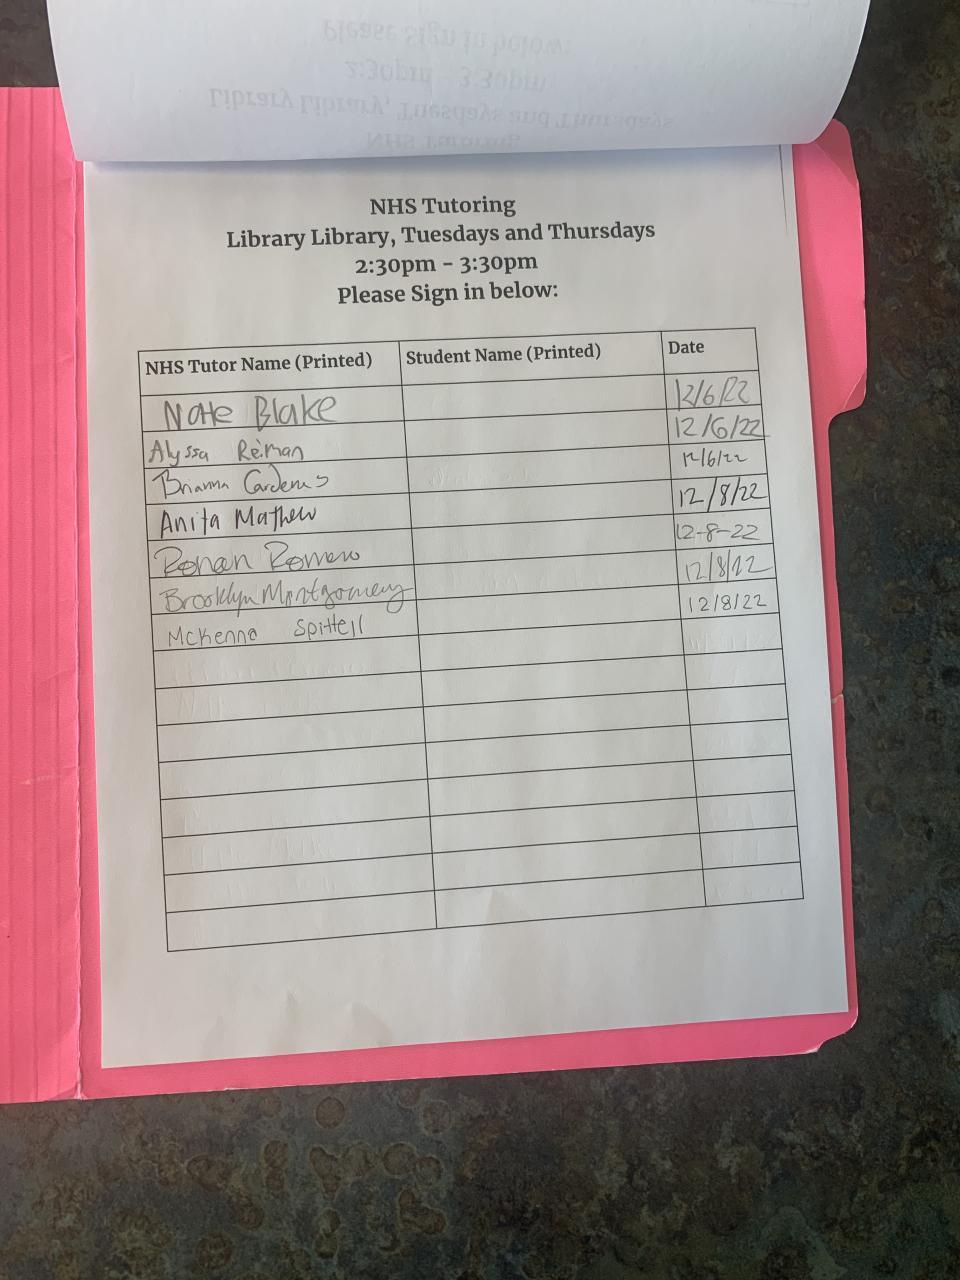 NHS Tutoring
Library Library, Tuesdays and Thursdays
2:30pm - 3:30pm
Please Sign in below:
NHS Tutor Name (Printed) Student Name (Printed) Date
Nate Blake 12/6/22
Alyssa Reiman 12/6/22
Brianna Cardenas 12/6/22
Anita Mathew 12/8/22
Ronan Romero 12-8-22
Brooklyn Montgomery 12/8/22
McKenna Spittell 12/8/22